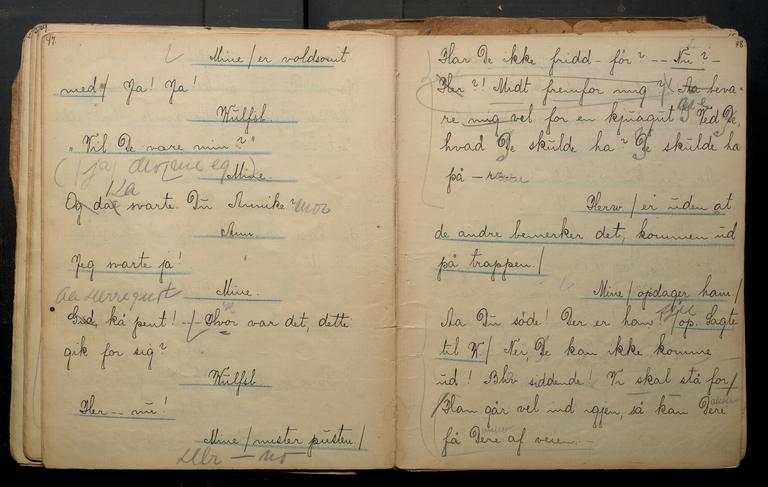 47
Mine / er voldsomt
med / Ja! Ja!
Wulfsb.
"Vil De være min?"
Mine.
Og da svarte Du Annike?
Ann.
Jeg svarte ja!
Mine.
Gud, kå pent! - Hvor var det, dette
gik for sig?
Wulfsb.
Her -- nu!
Mine / mister pusten /
48
Har De ikke fridd - før? -- Nu? -
Her?! Midt fremfor mig?! Aa beva-
re mig vel for en kjuagut! Ved De,
hvad De skulde ha? De skulde ha
på -
Herw / er uden at
de andre bemerker det, kommen ud
på trappen. /
Mine / opdager ham /
Aa Du søde! Der er han! / op. Sagte
til W. / Nei, De kan ikke komme
ud! Bliv siddende! Vi skal stå for /
/ Han går vel ind igjen, så kan Dere
få Dere af veien. -